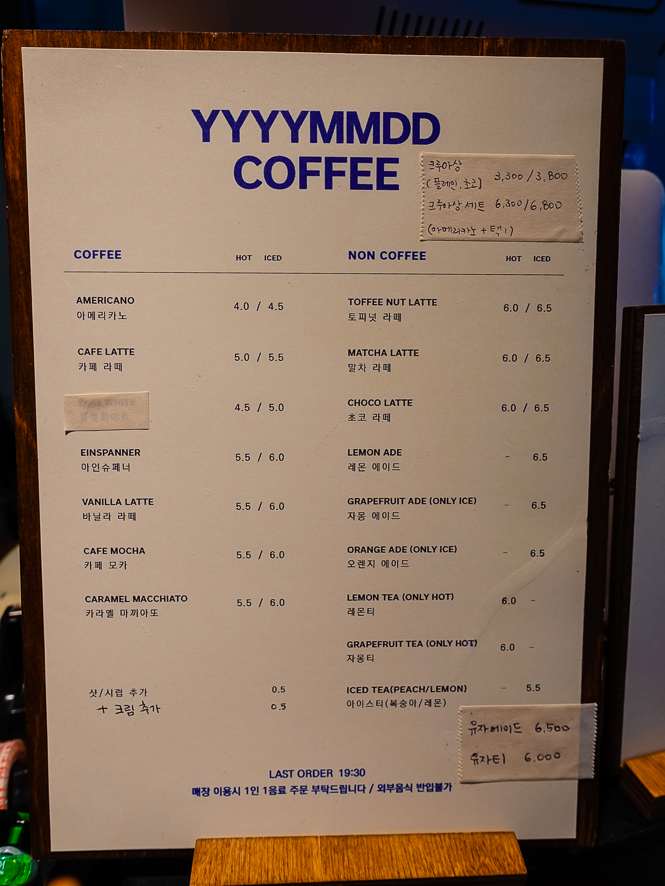 YYYYMMDD
COFFEE
크루아상
(플레인, 초코) 3,300 / 3,800
크루아상 세트 6,300/6,800
(아메리카노 + 택1)
COFFEE HOT ICED
AMERICANO 4.0 / 4.5
아메리카노
CAFE LATTE 5.0 / 5.5
카페 라떼
4.5 / 5.0
EINSPANNER 5.5 / 6.0
아인슈페너
VANILLA LATTE 5.5 / 6.0
바닐라 라떼
CAFE MOCHA 5.5 / 6.0
카페 모카
CARAMEL MACCHIATO 5.5 / 6.0
카라멜 마끼아또
샷/시럽 추가 0.5
+ 크림 추가 0.5
NON COFFEE HOT ICED
TOFFEE NUT LATTE 6.0 / 6.5
토피넛 라떼
MATCHA LATTE 6.0 / 6.5
말차 라떼
CHOCO LATTE 6.0 / 6.5
초코 라떼
LEMON ADE - 6.5
레몬 에이드
GRAPEFRUIT ADE (ONLY ICE) - 6.5
자몽 에이드
ORANGE ADE (ONLY ICE) - 6.5
오렌지 에이드
LEMON TEA (ONLY HOT) 6.0 -
레몬티
GRAPEFRUIT TEA (ONLY HOT) 6.0 -
자몽티
ICED TEA(PEACH/LEMON) - 5.5
아이스티(복숭아/레몬)
유자에이드 6,500
유자티 6.000
LAST ORDER 19:30
매장 이용시 1인 1음료 주문 부탁드립니다 / 외부음식 반입불가